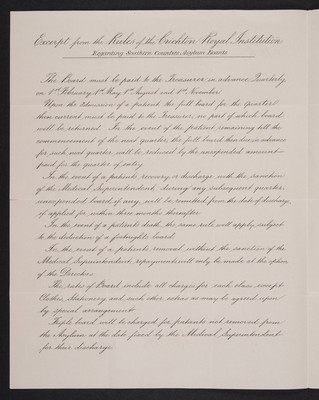 Excerpt from the Rules of the Crichton Royal Institution
Regarding Southern Counties Asylum Boards
The Board must be paid to the Treasurer in advance, Quarterly
on 1st February, 1st May, 1st August and 1st November
Upon the admission of a patient the full board for the quarter
then current must be paid to the Treasurer, no part of which board
will be returned. In the event of the patient remaining till the
commencement of the next quarter, the full board then due in advance
for such next quarter will be reduced by the unexpended amount
paid for the quarter of entry.
In the event of a patient's recovery, or discharge with the sanction
of the Medical Superintendent during any subsequent quarter,
unexpended board, if any, will be remitted from the date of discharge,
if applied for within three months thereafter
In the event of a patient's death, the same rule will apply, subject
to the deduction of a fortnight's board.
In the event of a patient's removal without the sanction of the
Medical Superintendent, repayment will only be made at the option
of the Directors
The rates of Board include all charges for each class except
Clothes, Stationery and such other extras as may be agreed upon
by special arrangement
Triple board will be charged for patients not removed from
the Asylum at the date fixed by the Medical Superintendent
for their discharge